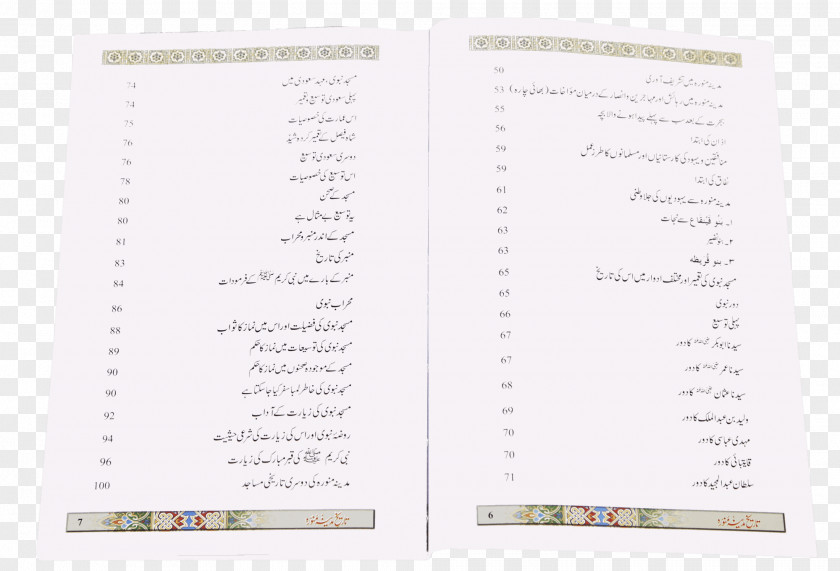 مدینہ منورہ میں تشریف آوری 50
مدینہ منورہ میں رہائش اور مہاجرین و انصار کے درمیان مؤاخات (بھائی چارہ) 53
ہجرت کے بعد سب سے پہلے پیدا ہونے والا بچہ 55
اذان کی ابتدا 56
منافقین و یہود کی کارستانیاں اور مسلمانوں کا طرزِ عمل 59
نفاق کی ابتدا 59
مدینہ منورہ سے یہودیوں کی جلاوطنی 61
۱۔ بنو قینقاع سے نجات 62
۲۔ بنو نضیر 63
۳۔ بنو قریظہ 63
مسجد نبوی کی تعمیر اور مختلف ادوار میں اس کی تاریخ 65
دور نبوی 65
پہلی توسیع 66
سیدنا ابوبکر رضی اللہ عنہ کا دور 67
سیدنا عمر رضی اللہ عنہ کا دور 67
سیدنا عثمان رضی اللہ عنہ کا دور 68
ولید بن عبدالملک کا دور 69
مہدی عباسی کا دور 70
قایتبائی کا دور 70
سلطان عبدالمجید کا دور 71
تاریخ مدینہ منورہ 6
مسجد نبوی، عہد سعودی میں 74
پہلی سعودی توسیع و تعمیر 74
اس عمارت کی خصوصیات 75
شاہ فیصل کے تعمیر کردہ شیڈ 76
دوسری سعودی توسیع 76
اس توسیع کی خصوصیات 78
مسجد کے صحن 80
یہ توسیع بے مثال ہے 80
مسجد کے اندر منبر و محراب 81
منبر کی تاریخ 83
منبر کے بارے میں نبی کریم ﷺ کے فرمودات 84
محراب نبوی 86
مسجد نبوی کی فضیلت اور اس میں نماز کا ثواب 88
مسجد نبوی کی توسیعات میں نماز کا حکم 89
مسجد کے موجودہ صحنوں میں نماز کا حکم 90
مسجد نبوی کی خاطر لمبا سفر کیا جا سکتا ہے 90
مسجد نبوی کی زیارت کے آداب 92
روضۂ نبوی اور اس کی زیارت کی شرعی حیثیت 94
نبی کریم ﷺ کی قبر مبارک کی زیارت 96
مدینہ منورہ کی دوسری تاریخی مساجد 100
تاریخ مدینہ منورہ 7